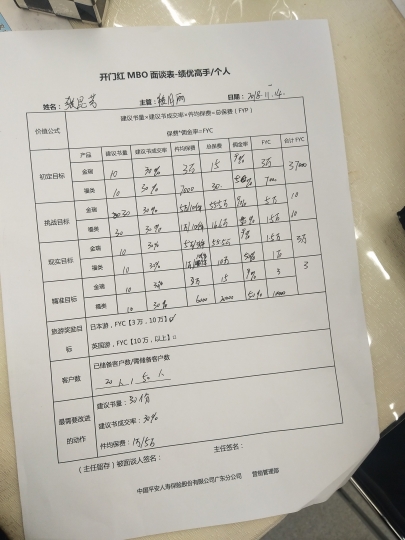 开门红 MBO 面谈表-绩优高手/个人
姓名： 主管： 日期：2018.11.14.
价值公式 建议书量*建议书成交率*件均保费=总保费（FYP）
保费*佣金率=FYC
产品 建议书量 建议书成交率 件均保费 总保费 佣金率 FYC 合计 FYC
初定目标 金瑞 10 30% 3万 15 9% 3万 37000
福类 10 30% 7000 30 7000
挑战目标 金瑞 30 30% 5万/10份 9% 5万 10
福类 30 30% 1万/10份 16.6万 15万 10
现实目标 金瑞 10 30% 9% 15万 3万
福类 10 30% 10万 50% 1万
瞄准目标 金瑞 10 30% 3万 15 9% 3 3
福类 10 30% 6000 20000 50% 10000
旅游奖励目标 日本游，FYC【3 万，10 万】√
英国游，FYC【10 万，以上】□
客户数 已储备客户数/需储备客户数
20 人 / 50 人
最需要改进的动作 建议书量：30份
建议书成交率：30%
件均保费：1万/5万
（主任留存）被面谈人签名： 主任签名：
中国平安人寿保险股份有限公司广东分公司 营销管理部